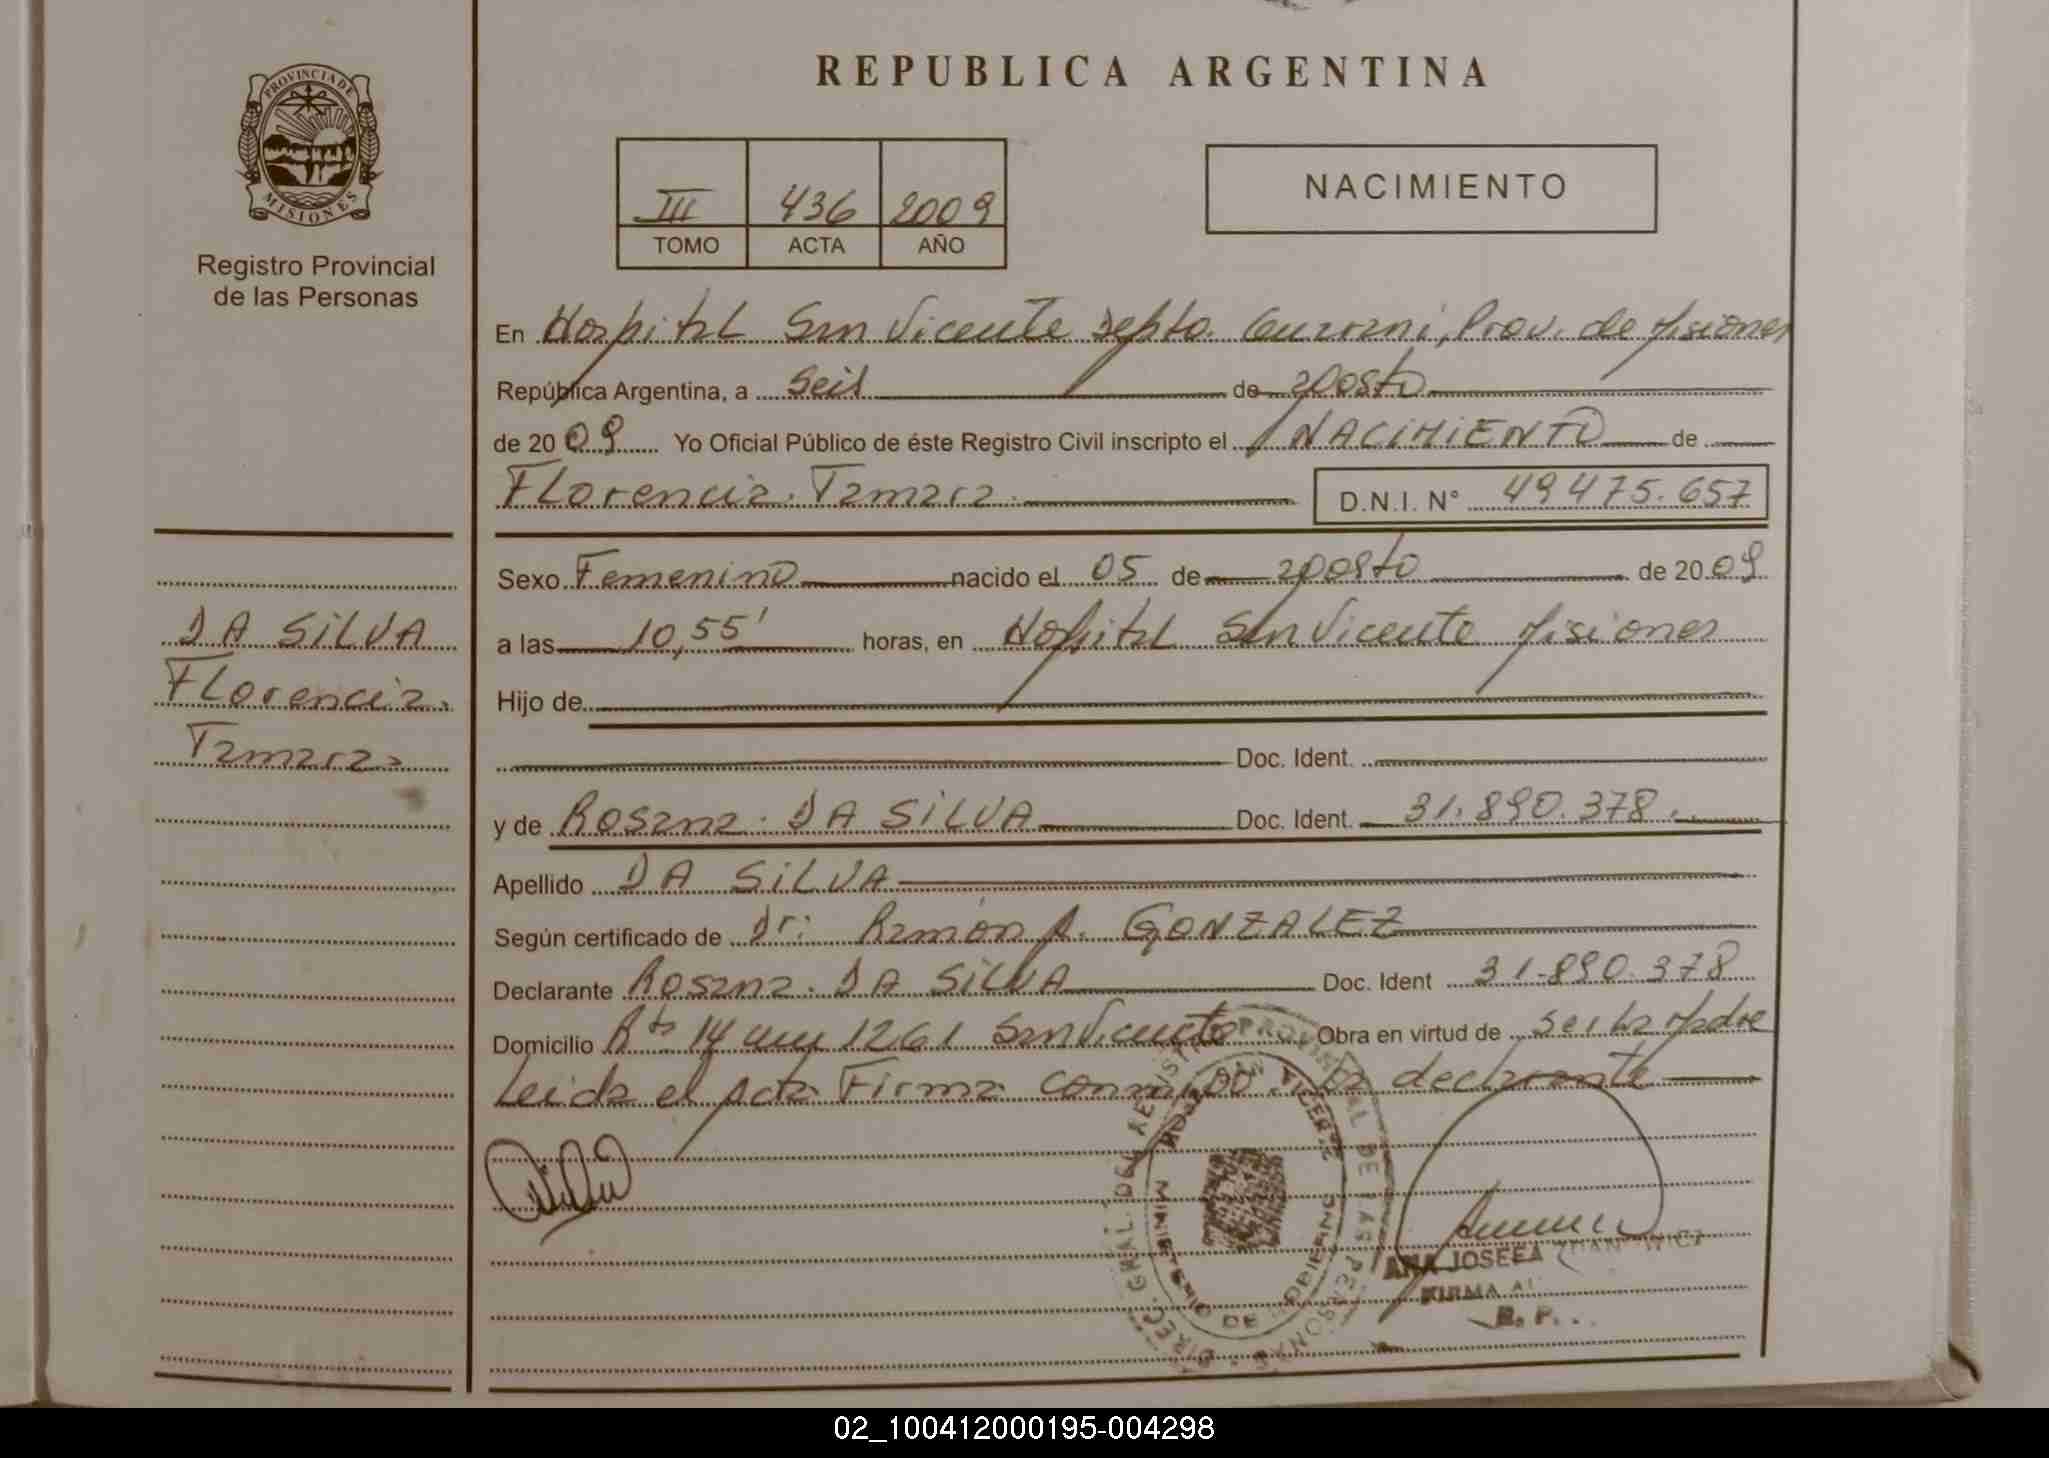 REPUBLICA ARGENTINA
PROVINCIA DE MISIONES
Registro Provincial
de las Personas
III 436 2009
TOMO ACTA AÑO
NACIMIENTO
En Hospital San Vicente Depto. Guarani, Prov. de Misiones
República Argentina, a seis de agosto
de 2009 Yo Oficial Público de éste Registro Civil inscripto el NACIMIENTO de
Florencia Tamara D.N.I. N° 49475.657
DA SILVA
Florencia
Tamara
Sexo Femenino nacido el 05 de agosto de 2009
a las 10,55' horas, en Hospital San Vicente Misiones
Hijo de
Doc. Ident.
y de Rosana DA SILVA Doc. Ident. 31.890.378.
Apellido DA SILVA
Según certificado de Dr: Ramón A. GONZALEZ
Declarante Rosana DA SILVA Doc. Ident 31.890.378
Domicilio Rta 14 1261 San Vicente Obra en virtud de ser la Madre
Leida el Acta Firma conmigo la declarante
DIREC. GRAL. DEL REGISTRO PROVINCIAL DE LAS PERSONAS
SAN VICENTE
MINISTERIO DE GOBIERNO
ANA JOSEFA
FIRMA
R. P.
02_100412000195-004298